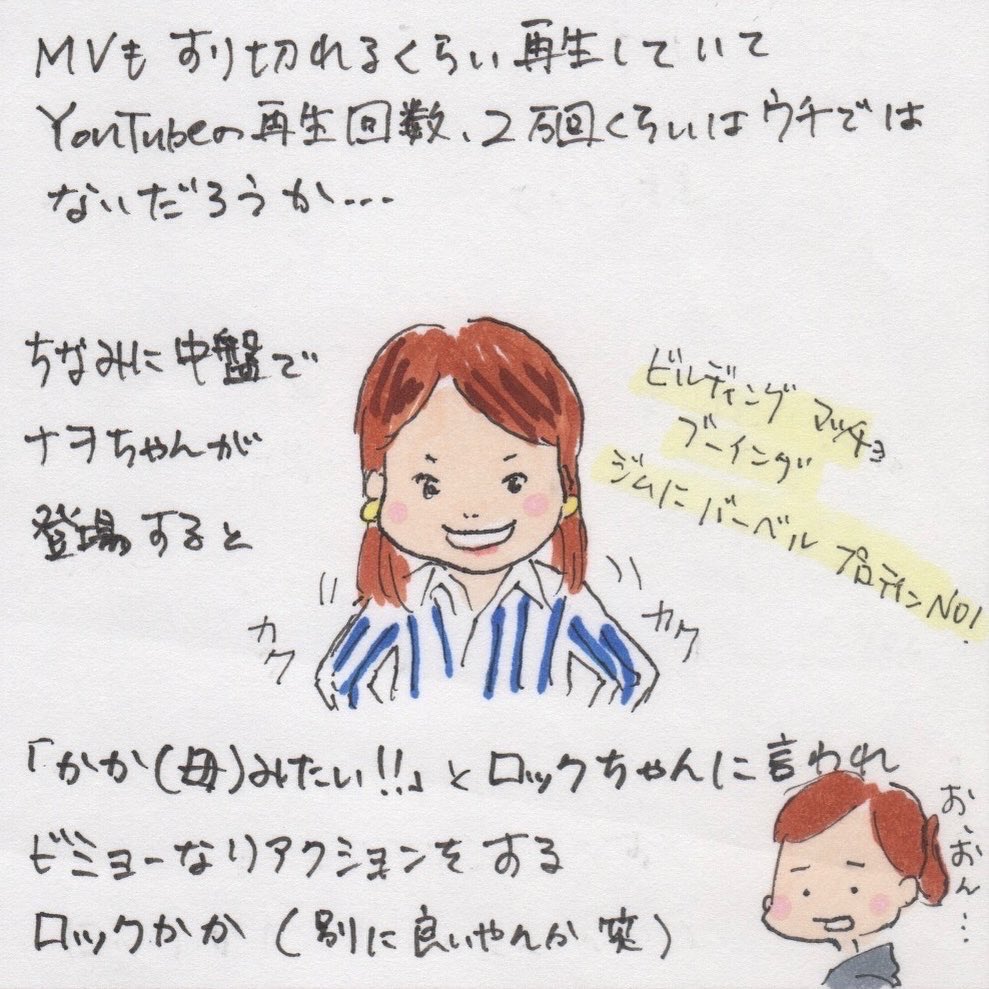 MVも すり切れるくらい再生していて
YouTubeの再生回数、2万回くらいはウチでは
ないだろうか…
ちなみに中盤で
ナヲちゃんが
登場すると
ビルディング マッチョ
ブーイング
ジムに バーベル プロテインNO!
カク
カク
「かか(母)みたい!!」とロックちゃんに言われ
ビミョーなリアクションをする
ロックかか (別に良いやんか 笑)
お、おん…